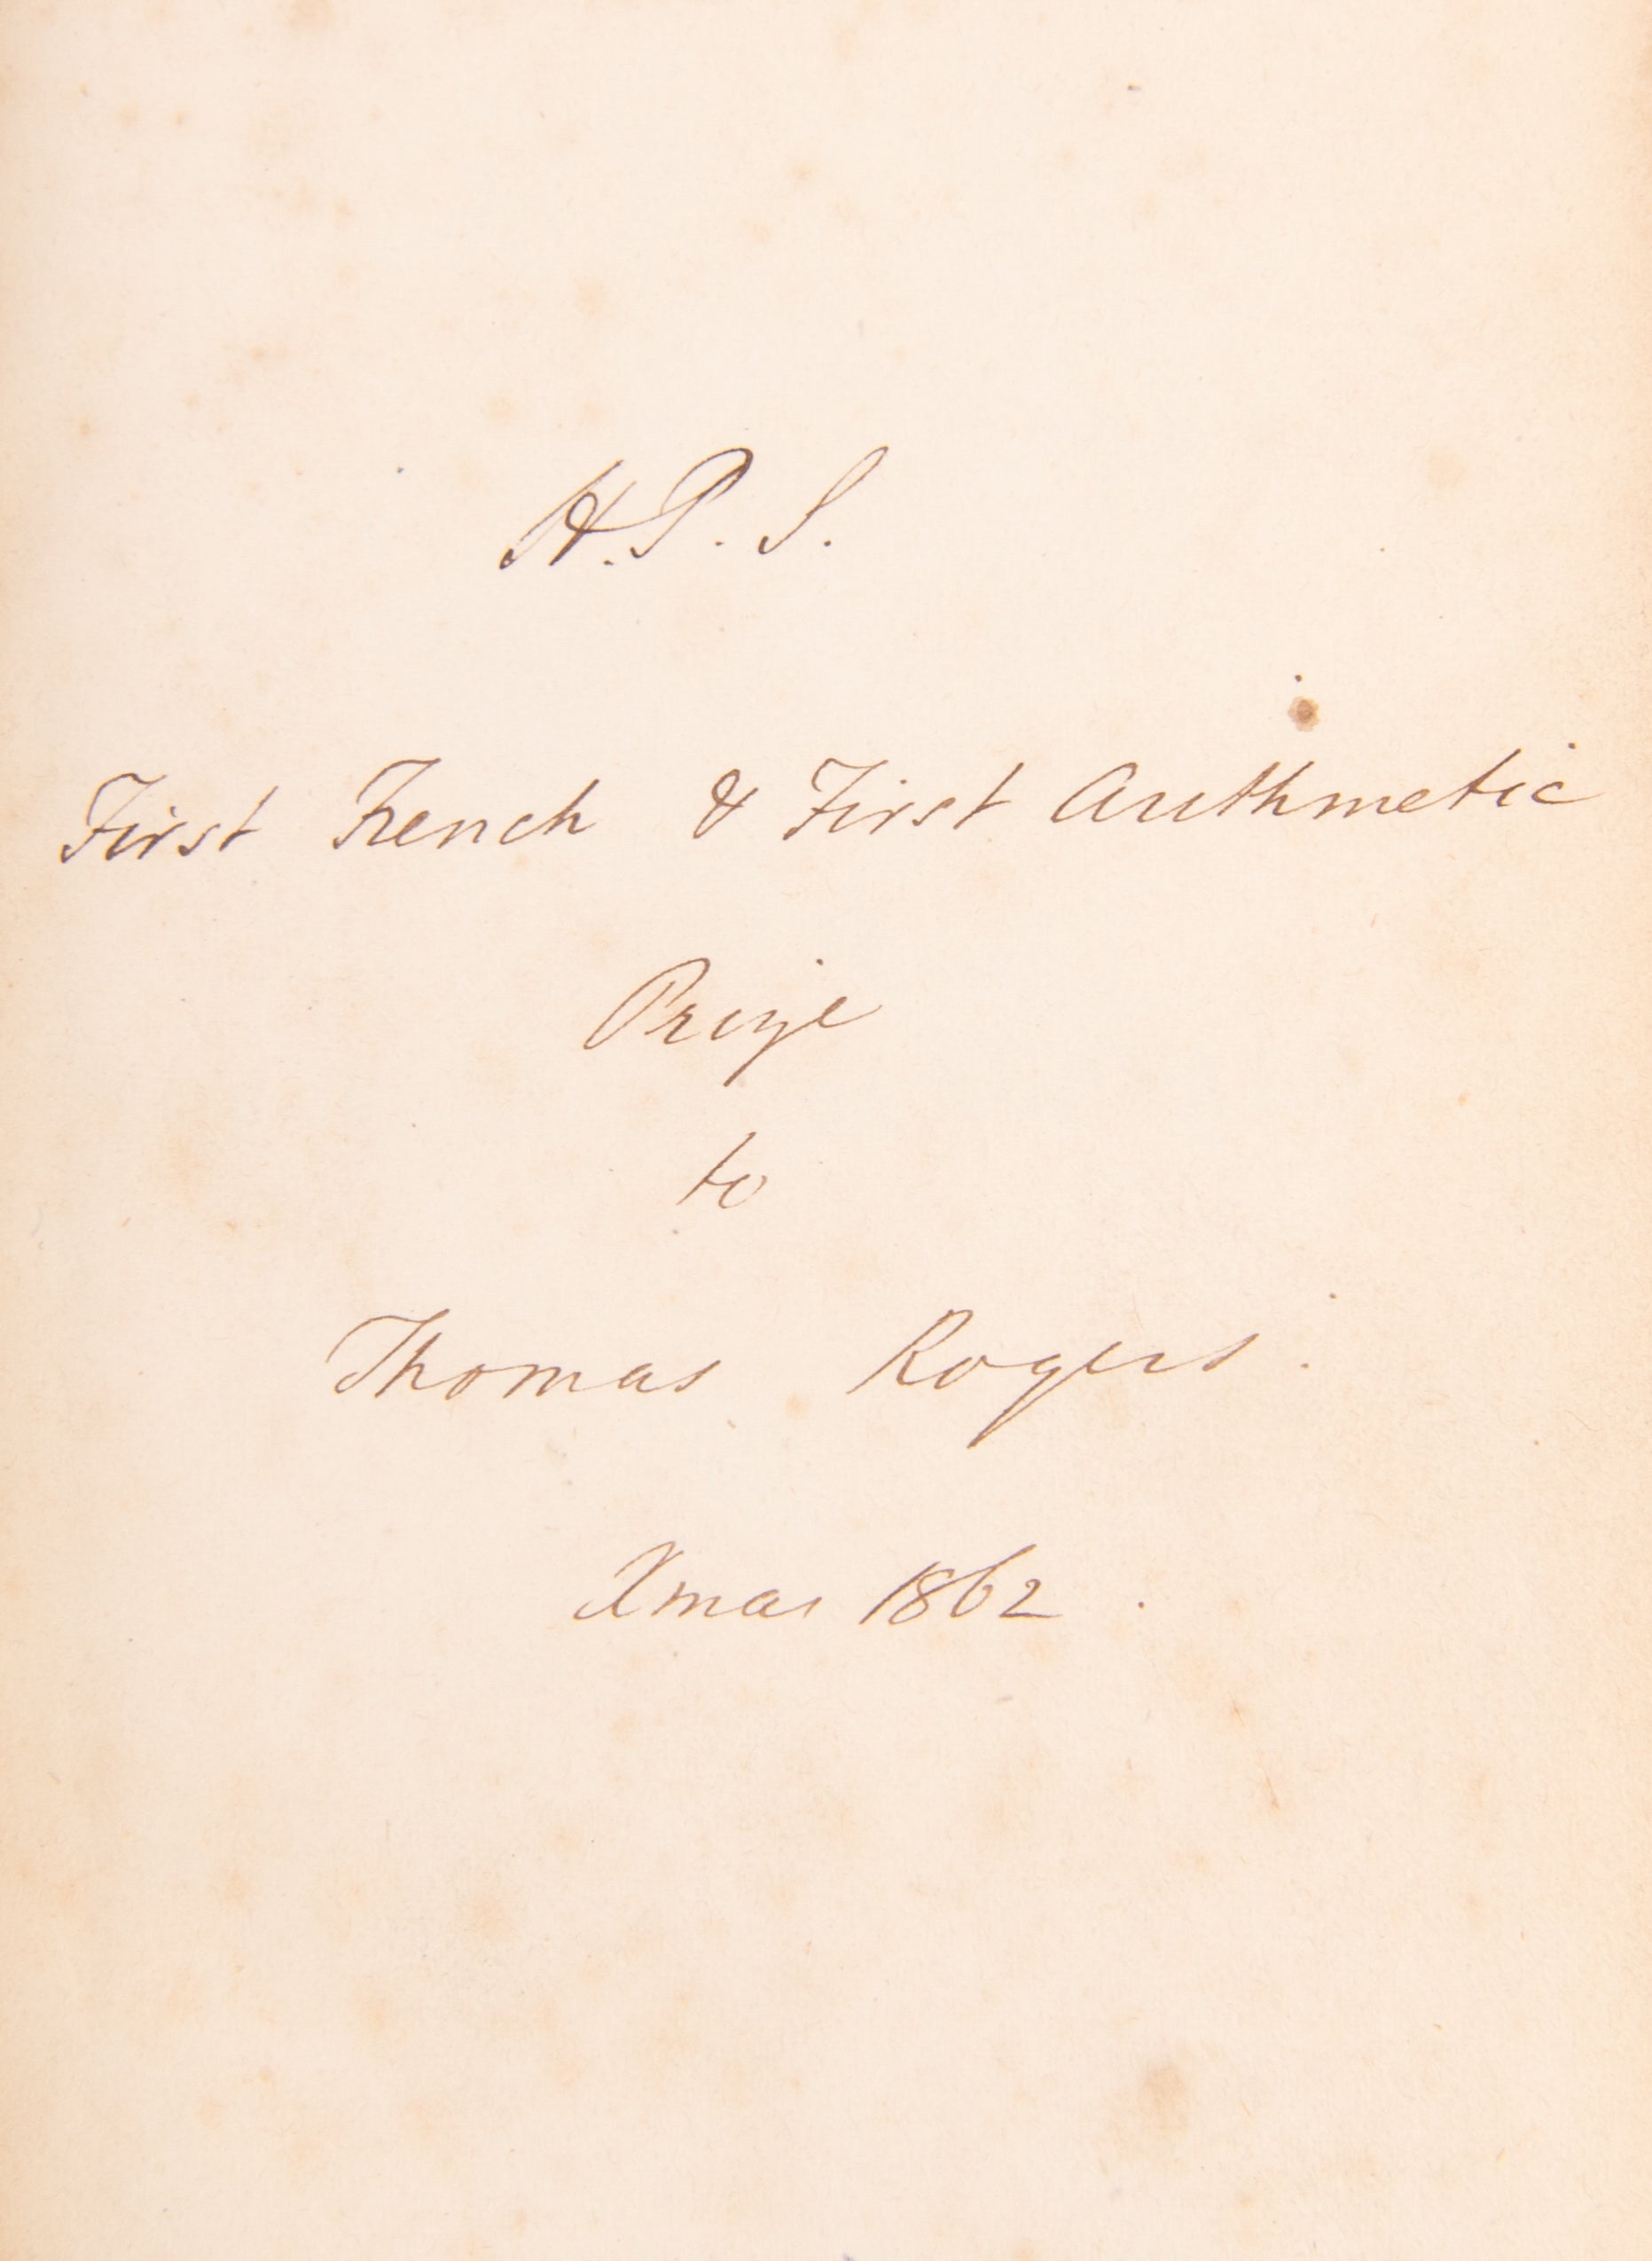 H.P.S.
First French & First Arithmetic
Prize
to
Thomas Rogers.
Xmas 1862.